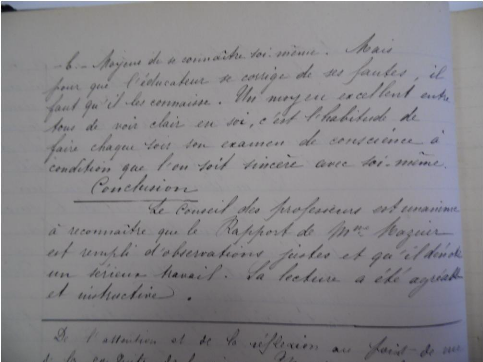 - b. - Moyens de se connaître soi-même. Mais
pour que l'éducateur se corrige de ses fautes, il
faut qu'il les connaisse. Un moyen excellent entre
tous de voir clair en soi, c'est l'habitude de
faire chaque soir son examen de conscience à
condition que l'on soit sincère avec soi-même.
Conclusion
Le Conseil des professeurs est unanime
à reconnaître que le Rapport de Mme
est rempli d'observations justes et qu'il dénote
un sérieux travail. Sa lecture a été agréable
et instructive.
De l'attention et de la réflexion au point de vue